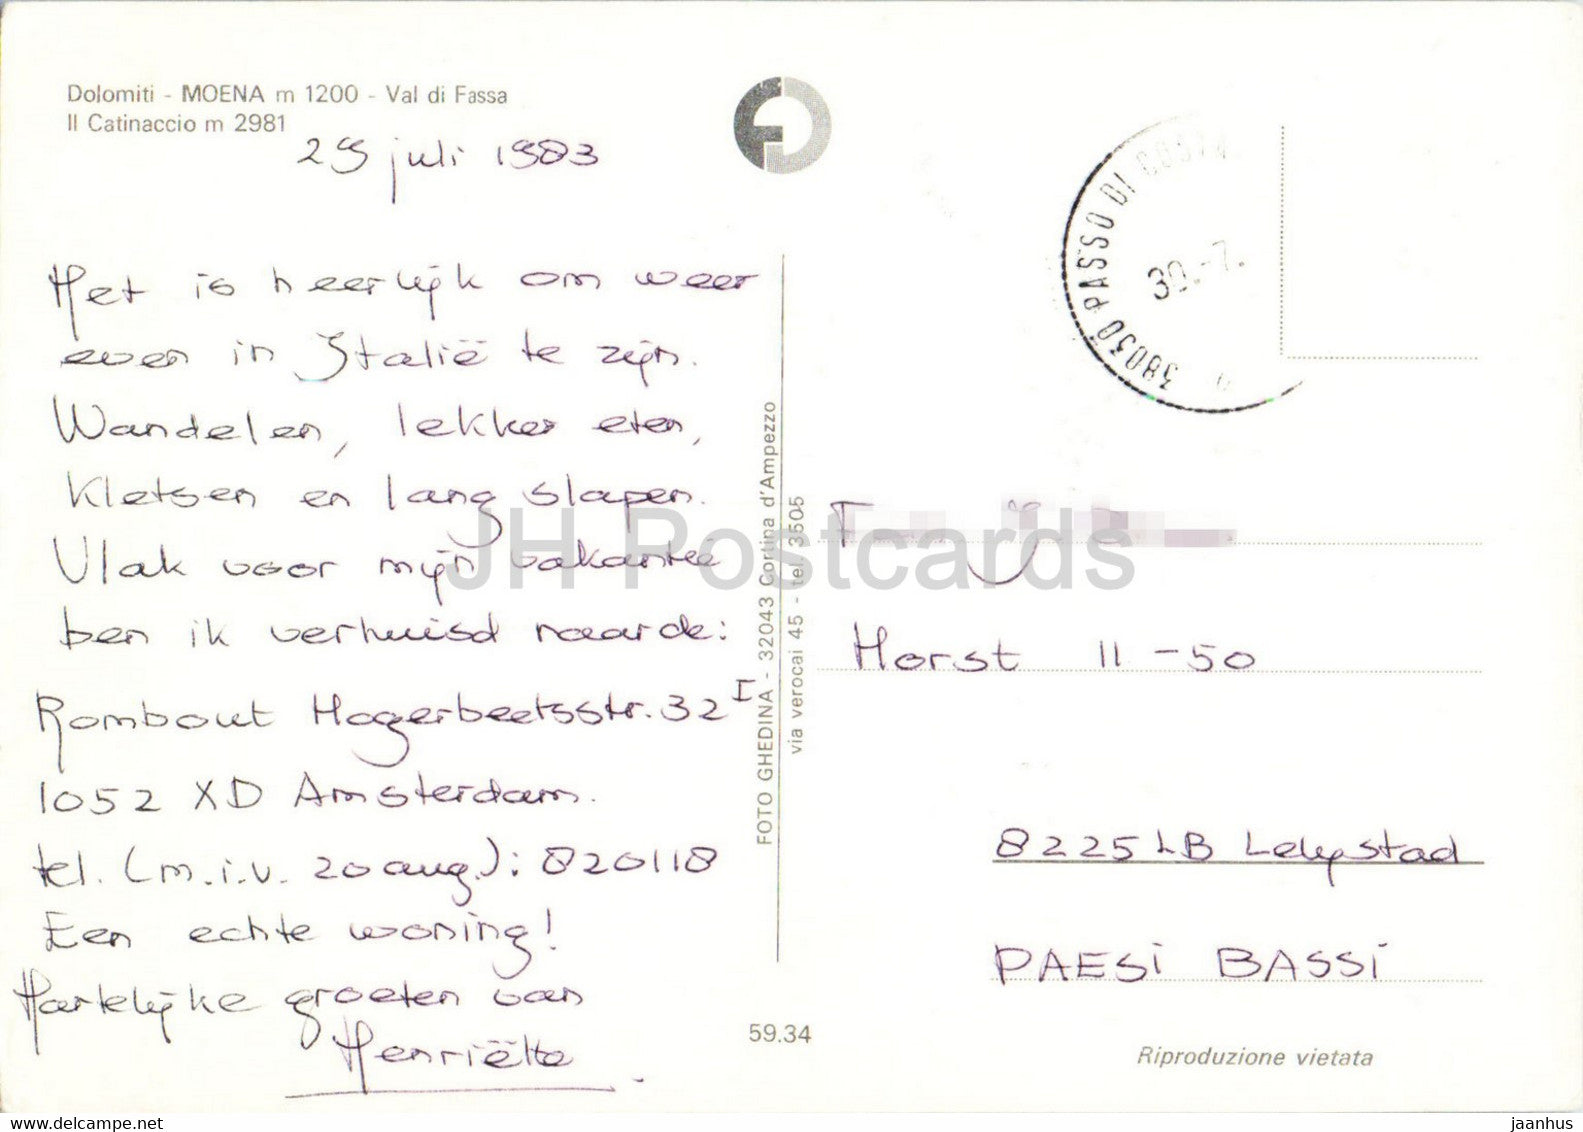 Dolomiti - MOENA m 1200 - Val di Fassa
Il Catinaccio m 2981
29 juli 1983
Het is heerlijk om weer
even in Italië te zijn.
Wandelen, lekker eten,
Kletsen en lang slapen.
Vlak voor mijn vakantie
ben ik verhuisd naar de:
Rombout Hogerbeetsstr. 32 I
1052 XD Amsterdam.
tel. (m.i.v. 20 aug.): 820118
Een echte woning!
Hartelijke groeten van
Henriëtte.
FOTO GHEDINA - 32043 Cortina d'Ampezzo
via verocai 45 - tel 3505
59.34
38030 PASSO DI COSTA
30.-7.
Horst 11 - 50
8225 LB Lelystad
PAESI BASSI
Riproduzione vietata
JH Postcards
www.delcampe.net
jaanhus